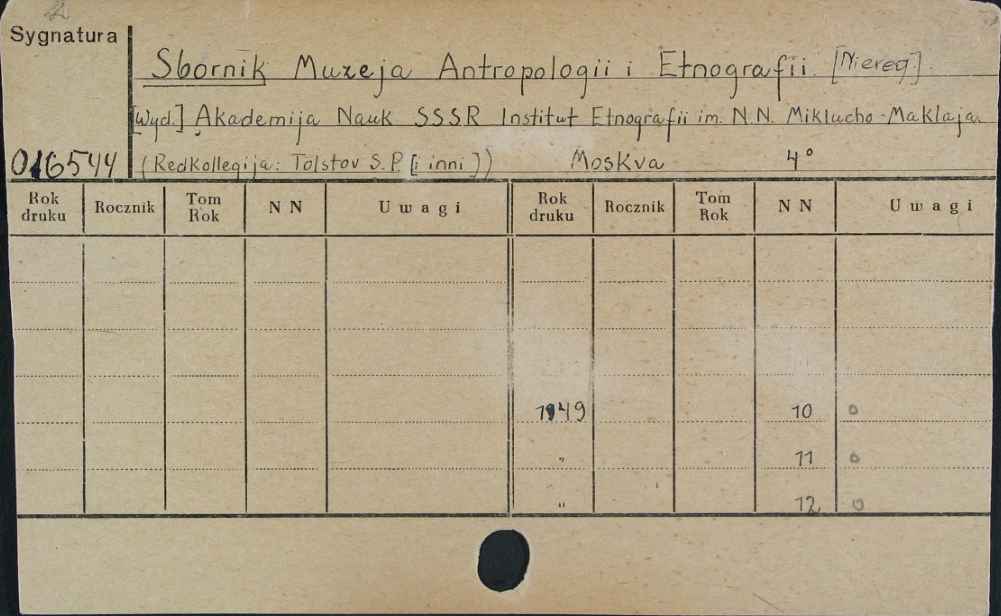 Sygnatura
Sbornik Muzeja Antropologii i Etnografii [Niereg.]
[Wyd.] Akademija Nauk SSSR Institut Etnografii im. N.N. Miklucho-Maklaja.
016544 (Redkollegija: Tolstov S.P. [i inni]) Moskva 4°
Rok druku Rocznik Tom Rok NN Uwagi Rok druku Rocznik Tom Rok NN Uwagi
1949 10 o
" 11 o
" 12 o